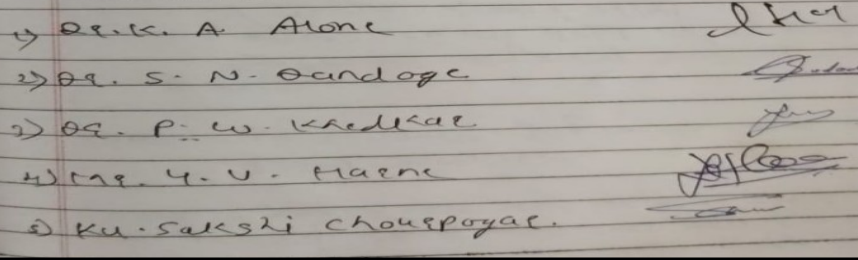 1) Dr. K. A. Alone
2) Dr. S. N. Bandoge
3) Dr. P. W. Khedkar
4) Mr. Y. V. Harne
5) Ku. Sakshi Chourpogar.